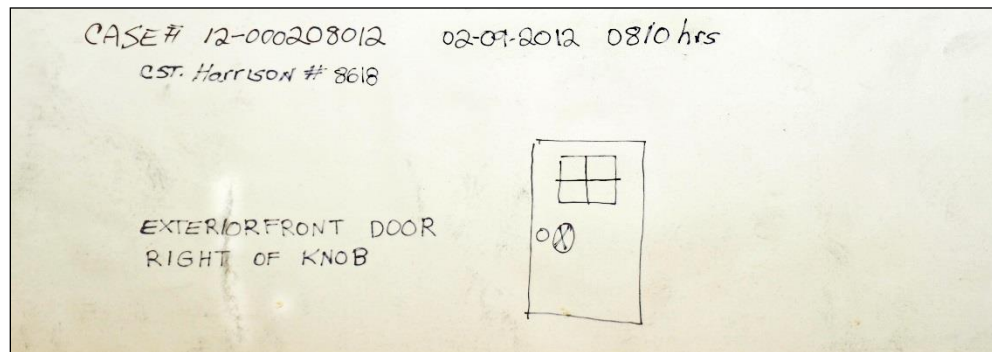 CASE# 12-000208012 02-09-2012 0810 hrs
CST. Harrison # 8618
EXTERIOR FRONT DOOR
RIGHT OF KNOB